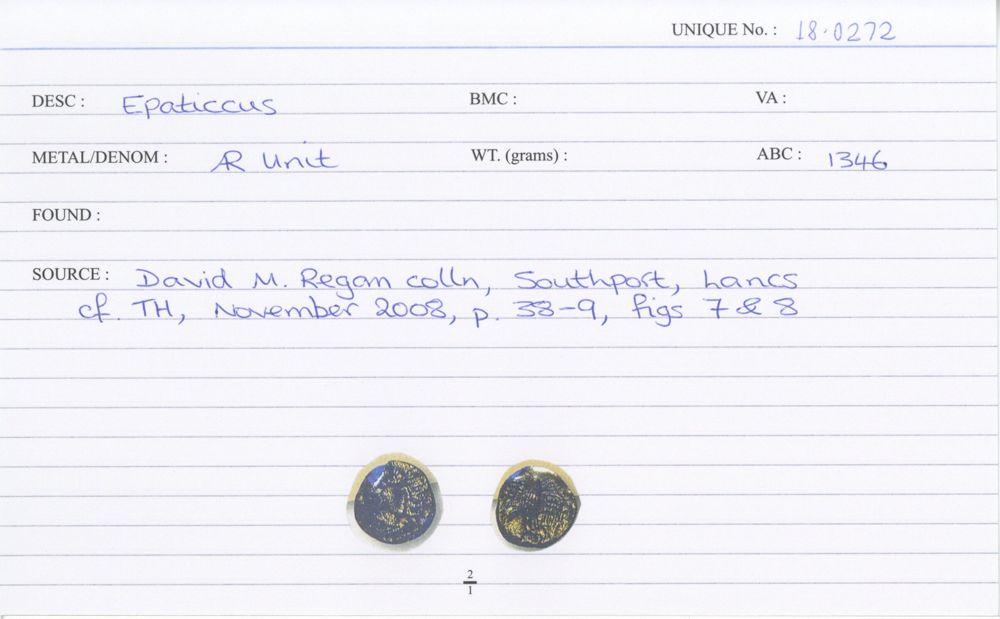 UNIQUE No. : 18.0272
DESC : Epaticcus BMC : VA :
METAL/DENOM : AR Unit WT. (grams) : ABC : 1346
FOUND :
SOURCE : David M. Regan colln, Southport, Lancs
cf. TH, November 2008, p. 38-9, figs 7 & 8
2
1